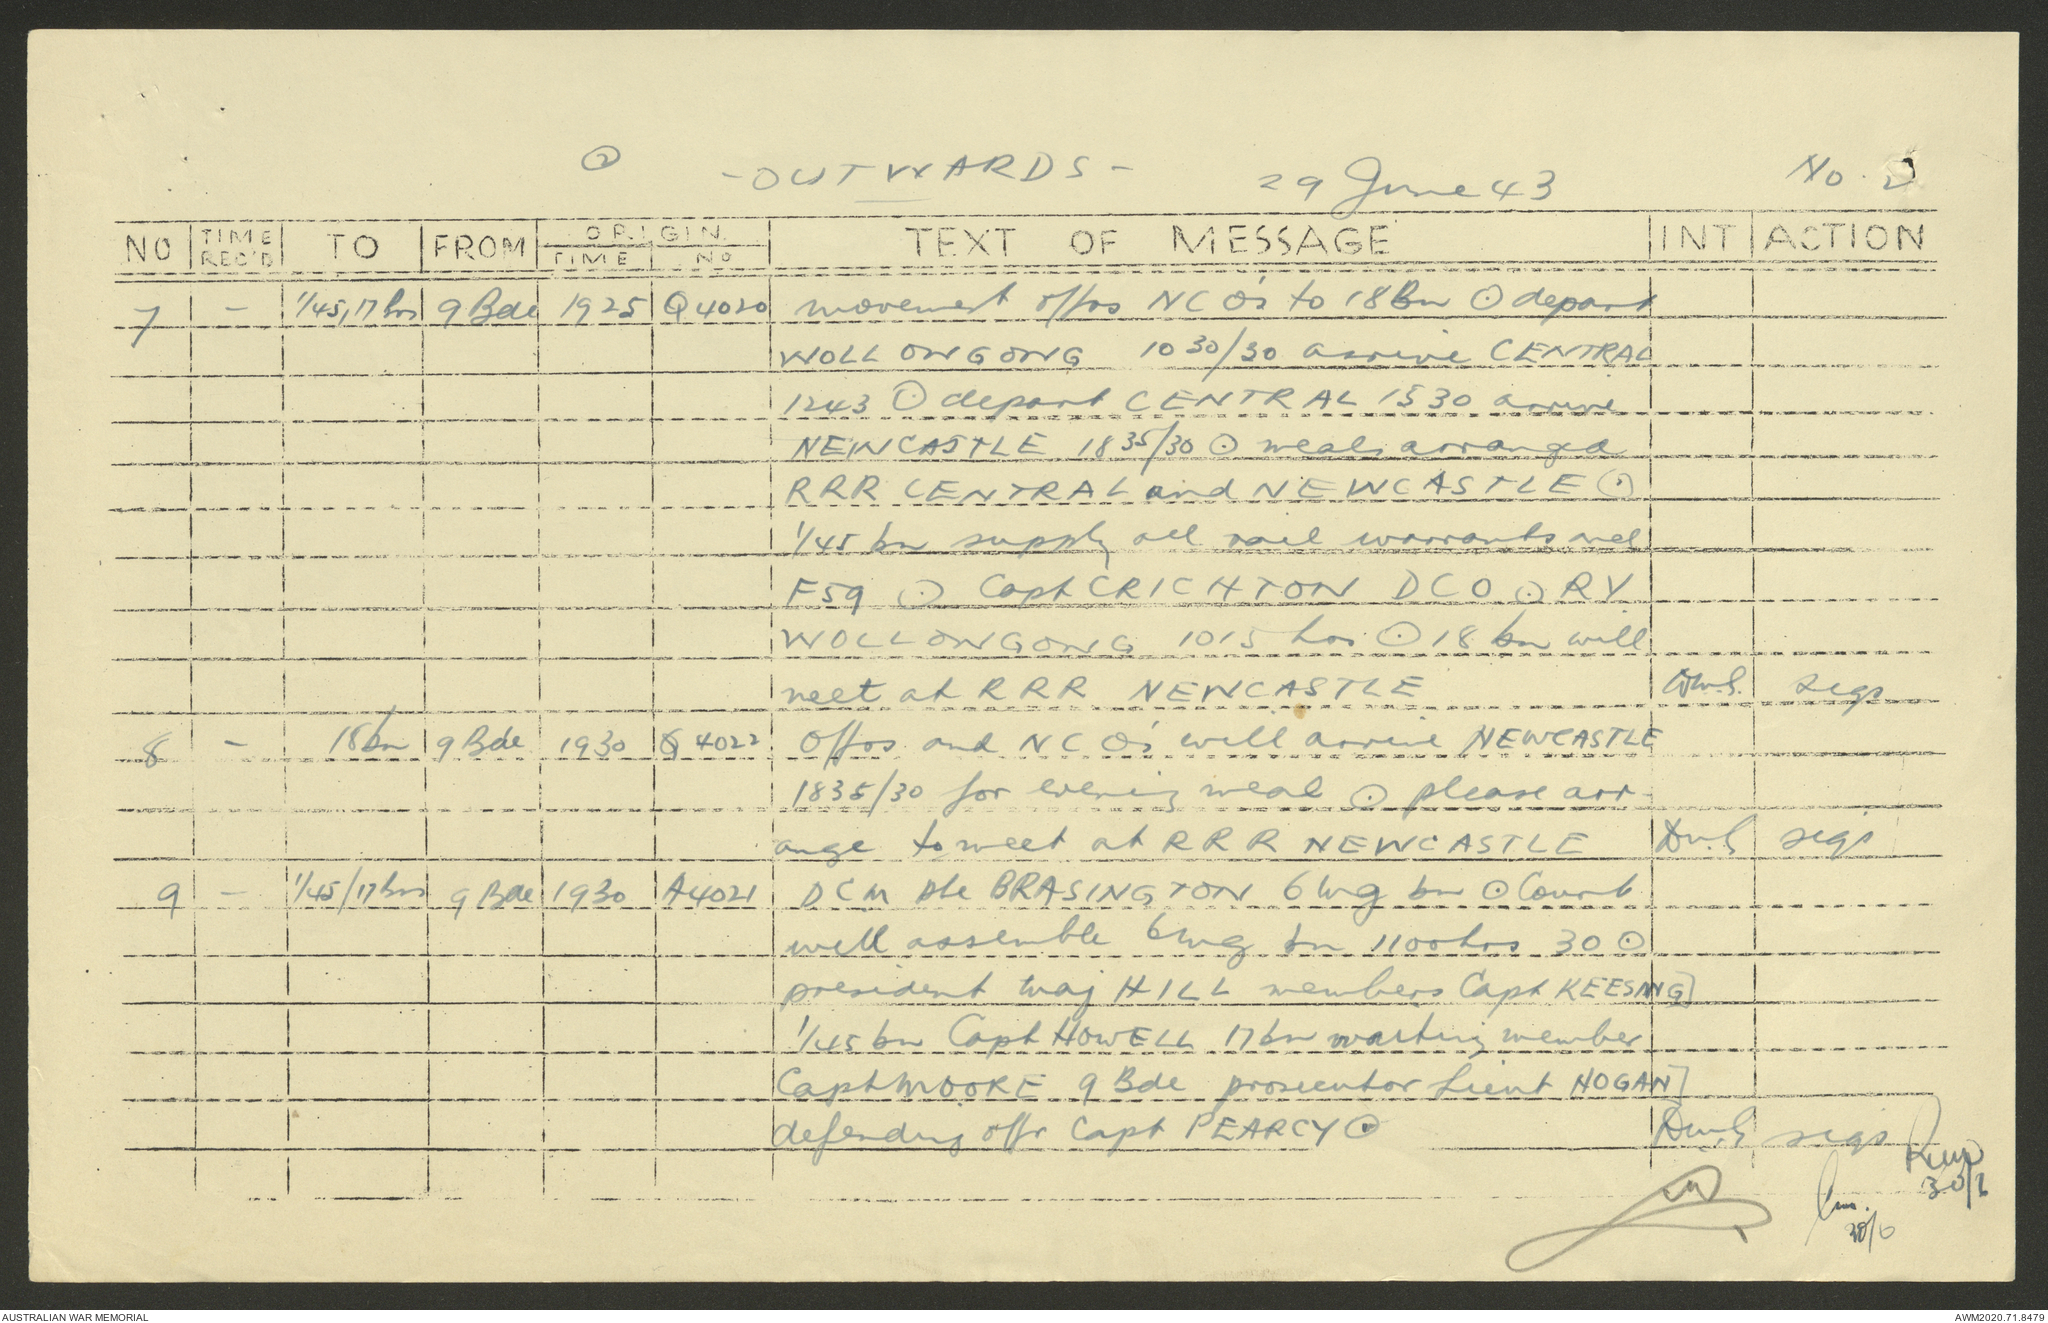 ② - OUTWARDS - 29 June 43 No. 2
NO TIME REC'D TO FROM ORIGIN TIME NO TEXT OF MESSAGE INT ACTION
7 - 1/45, 17 bns 9 Bde 1925 Q4020 movement offrs NCO's to 18 Bn ⊙ depart
WOLLONGONG 1030/30 arrive CENTRAL
1243 ⊙ depart CENTRAL 1530 arrive
NEWCASTLE 1835/30 ⊙ meals arranged
RRR CENTRAL and NEWCASTLE ⊙
1/45 bn supply all rail warrants and
F59 ⊙ Capt CRICHTON DCO ⊙ RV
WOLLONGONG 1015 hrs ⊙ 18 bn will
meet at RRR NEWCASTLE sigs
8 - 18 bn 9 Bde 1930 Q4022 Offrs and NCO's will arrive NEWCASTLE
1835/30 for evening meal ⊙ please arr-
ange to meet at RRR NEWCASTLE sigs
9 - 1/45/17 bns 9 Bde 1930 A4021 DCM Pte BRASINGTON 6 bn ⊙ Court
will assemble 6 bn 1100 hrs 30 ⊙
president Maj HILL members Capt KEESING]
1/45 bn Capt HOWELL 17 bn waiting member
Capt MOORE 9 Bde prosecutor Lieut HOGAN]
defending offr Capt PEARCY ⊙ sigs
30/6
AUSTRALIAN WAR MEMORIAL AWM2020.71.8479